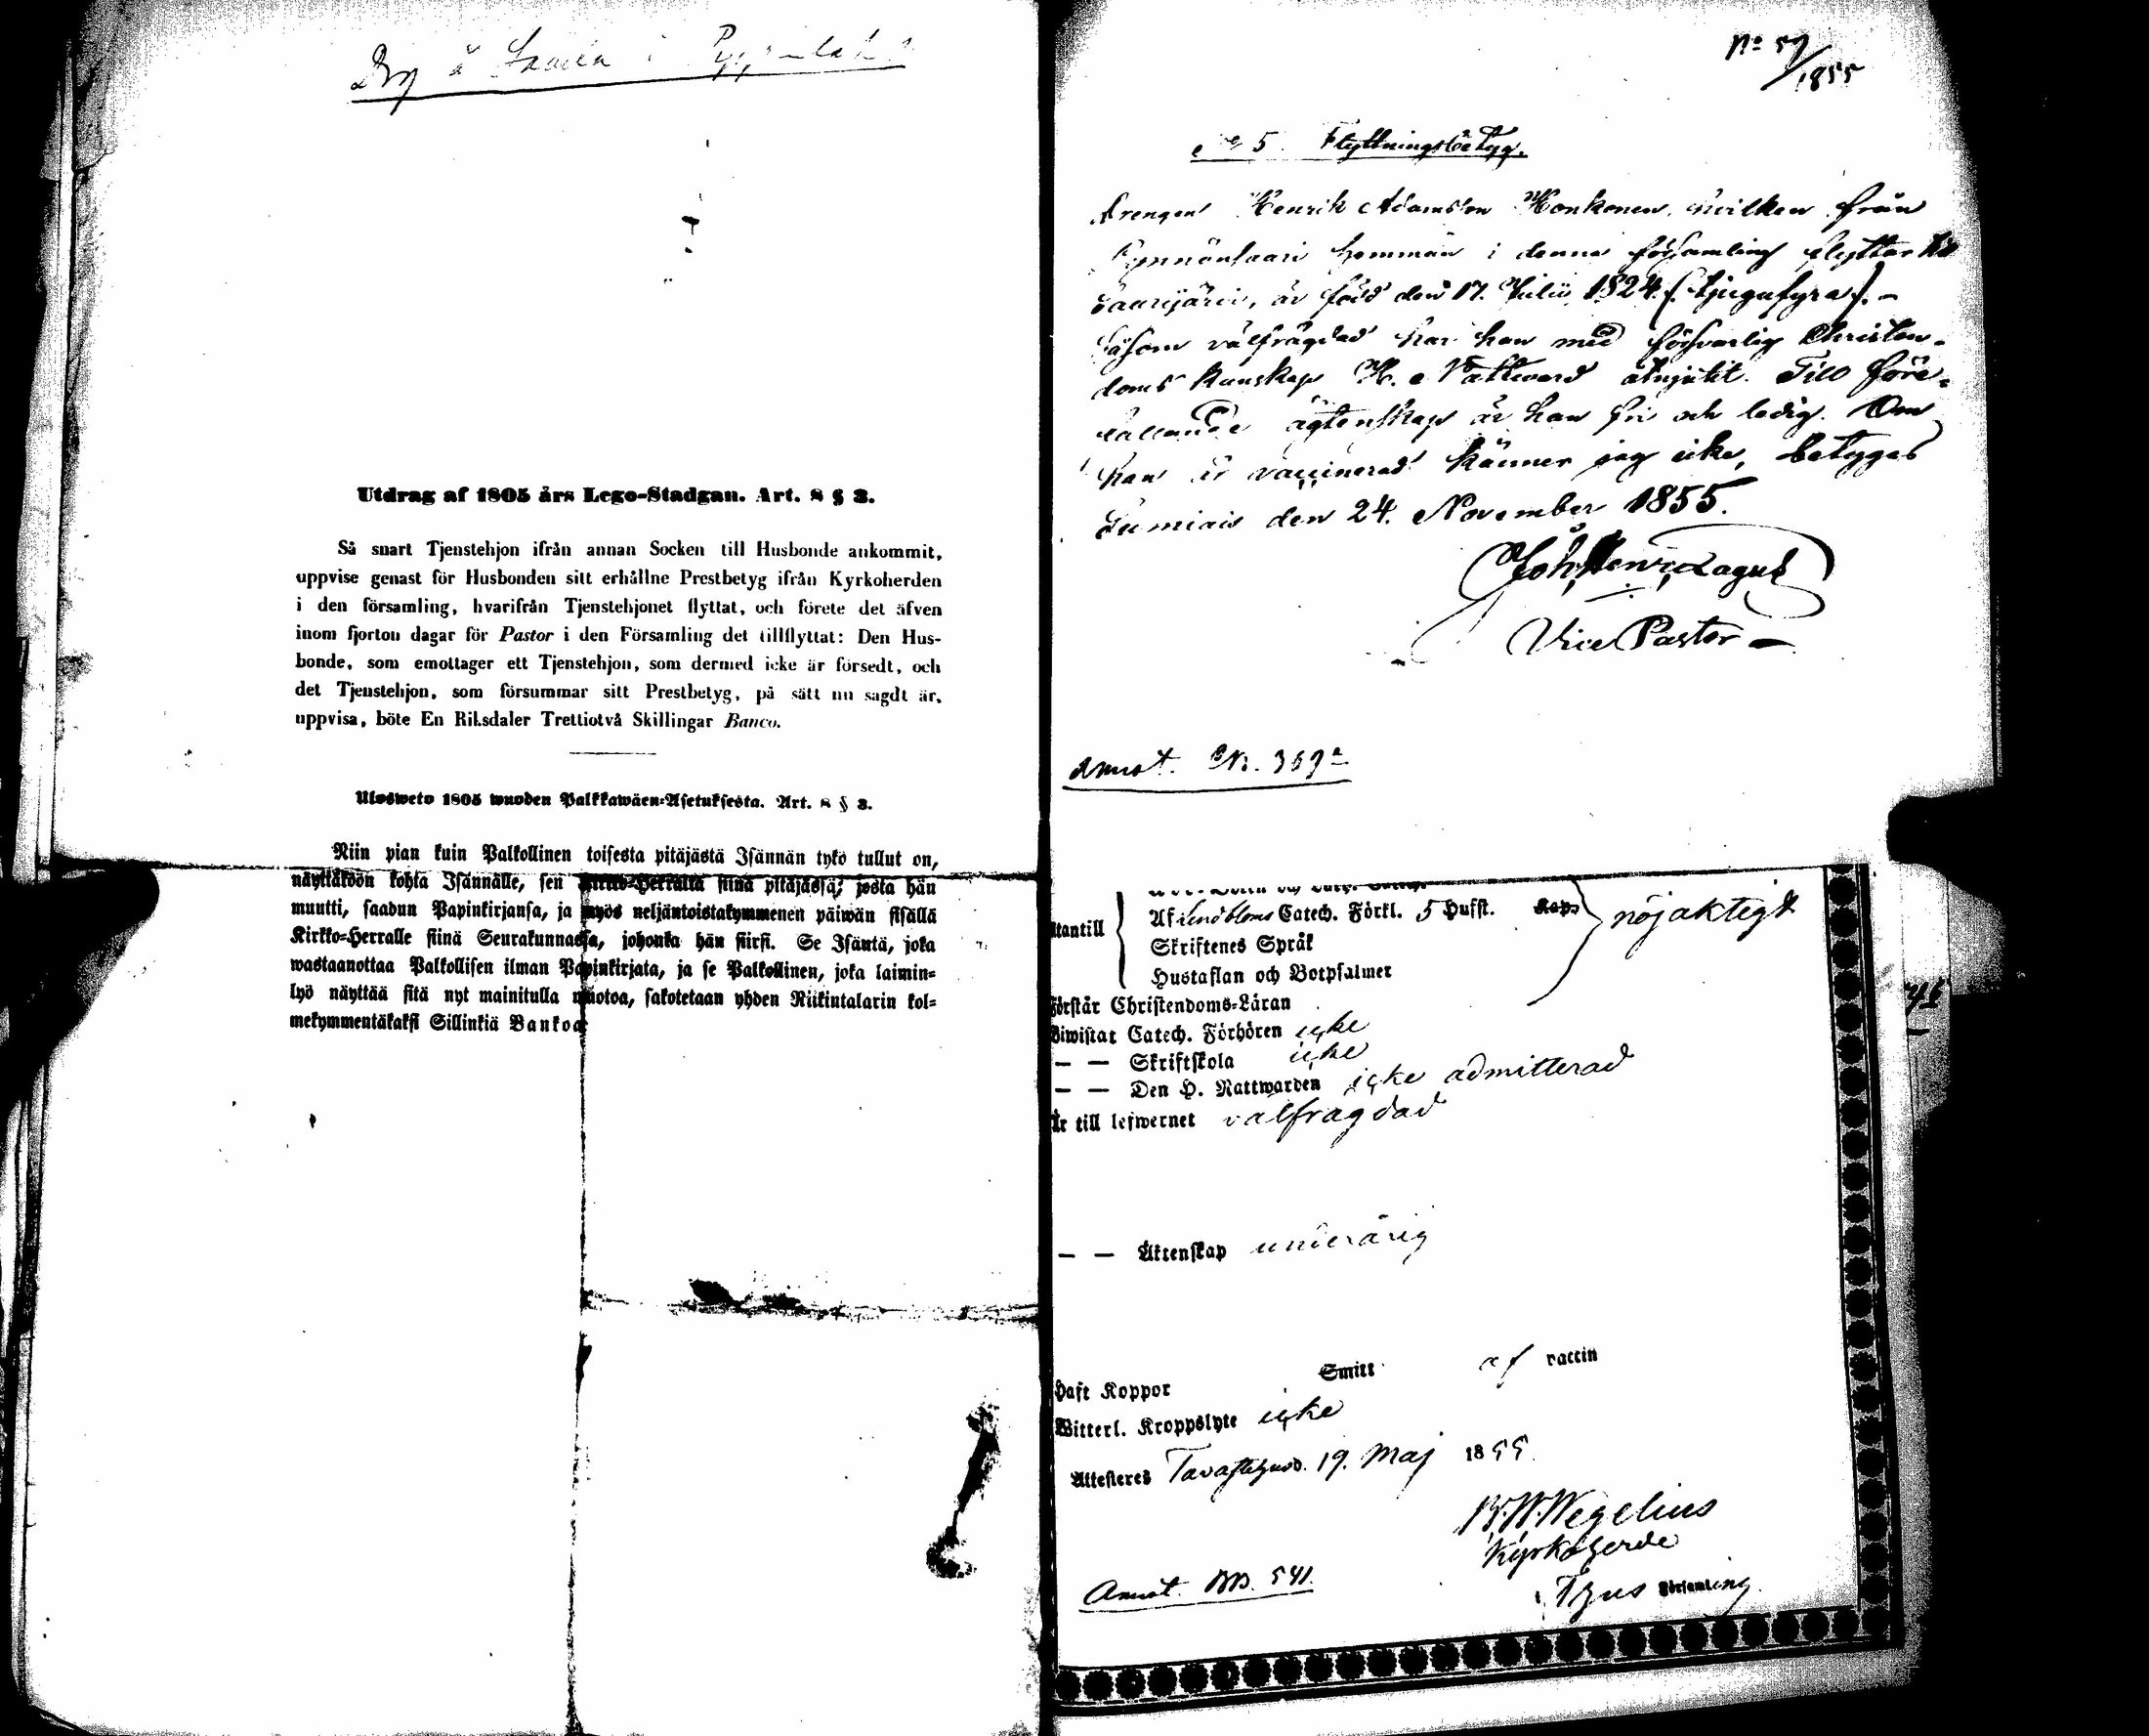 Drg å Saarela i
Utdrag af 1805 års Lego-Stadgan. Art. 8 § 3.
Så snart Tjenstehjon ifrån annan Socken till Husbonde ankommit,
uppvise genast för Husbonden sitt erhållne Prestbetyg ifrån Kyrkoherden
i den församling, hvarifrån Tjenstehjonet flyttat, och förete det äfven
inom fjorton dagar för Pastor i den Församling det tillflyttat: Den Hus-
bonde, som emottager ett Tjenstehjon, som dermed icke är försedt, och
det Tjenstehjon, som försummar sitt Prestbetyg, på sätt nu sagdt är,
uppvisa, böte En Riksdaler Trettiotvå Skillingar Banco.
Ulosweto 1805 wuoden Palkkawäen-Asetuksesta. Art. 8 § 3.
Niin pian kuin Palkollinen toisesta pitäjästä Isännän tykö tullut on,
näyttäköön kohta Isännälle, sen Kirkko-Herralta siinä pitäjässä, josta hän
muutti, saadun Papinkirjansa, ja myös neljäntoistakymmenen päiwän sisällä
Kirkko-Herralle siinä Seurakunnassa, johonka hän siirsi. Se Isäntä, joka
wastaanottaa Palkollisen ilman Papinkirjata, ja se Palkollinen, joka laimin-
lyö näyttää sitä nyt mainitulla muotoa, sakotetaan yhden Riikintalarin kol-
mekymmentäkaksi Sillinkiä Bankoa.
No 57/1855
No 5. Flyttningsbetyg.
Drengen Henrik Adamsson Honkonen, hvilken från
hemman i denna församling flyttar till
är född den 17. Julii 1824 (tjugufyra). –
Såsom välfrägdad har han med försvarlig Christen-
doms kunskap H. Nattvard åtnjutit. Till före-
fallande ägtenskap är han fri och ledig. Om
han är vaccinerad känner jag icke, betygas
Lumiais den 24. November 1855.
Joh. Henr. Lagus
Vice Pastor –
Annot. N. 369
Utantill
Af Lindbloms Catech. Förkl. 5 Hufst. Kap. nöjaktigt
Skriftenes Språk
Hustaflan och Botpsalmer
Förstår Christendoms-Läran
Biwistat Catech. Förhören icke
— — Skriftskola icke
— — Den H. Nattwarden icke admitterad
Är till lefwernet välfrägdad
— — Äktenskap underårig
Haft Koppor Smitt af vaccin
Witterl. Kroppslyte icke
Attesteres Tavastehus d. 19. Maj 1855.
Wegelius
Kyrkoherde
i T:hus Församling.
Annot. 541.